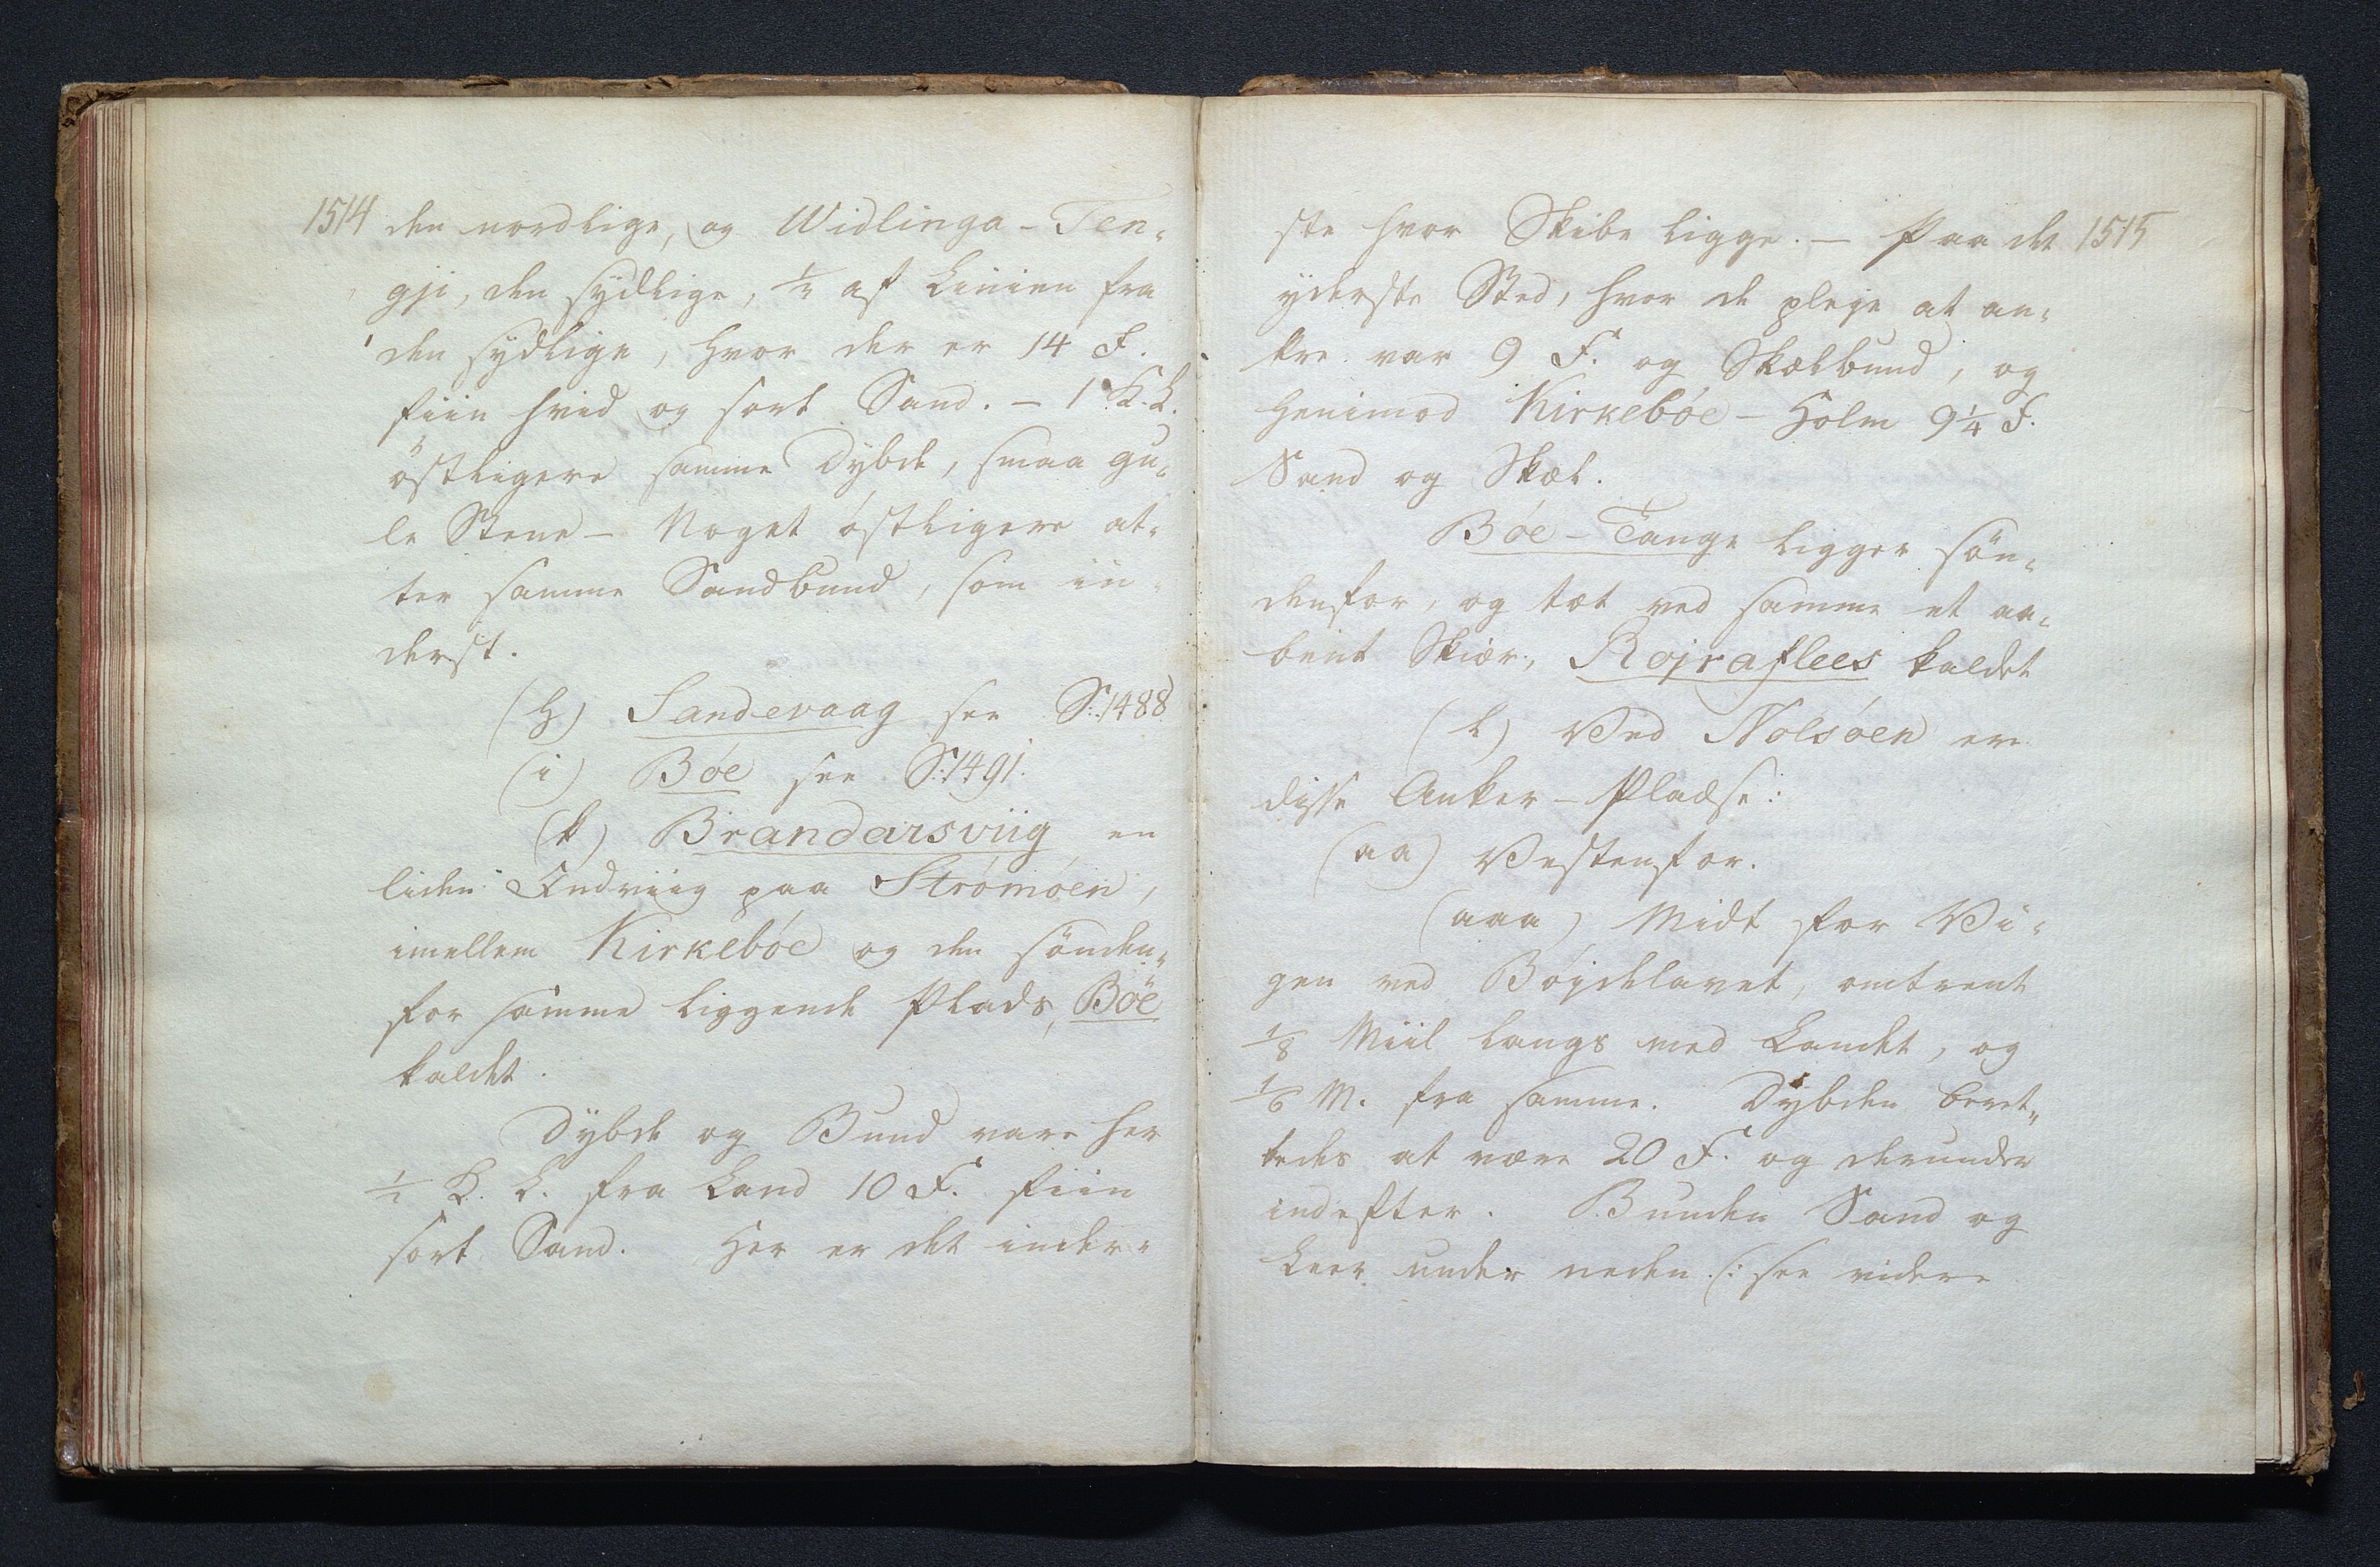 1514 den nordlige, og Widlinga-Ten¬
gji, den sydlige, ½ af Linien fra
den sydlige, hvor der er 14 F.
fiin hvid og sort Sand. — 1 K.L.
østligere samme Dybde, smaa gu¬
le Stene — Noget østligere at¬
ter samme Sandbund, som in¬
derst.
(h) Sandevaag see S: 1488
(i) Bøe see S: 1491.
(k) Brandarsviig en
liden Indviig paa Strømøen,
imellem Kirkebøe og den sønden¬
for samme liggende Plads, Bøe
kaldet.
Dybde og Bund vare her
½ K. L. fra Land 10 F. fiin
sort Sand. Her er det inder¬
ste hvor Skibe ligge. — Paa det 1515
yderste Sted, hvor de pleje at an¬
kre var 9 F. og Skælbund, og
henimod Kirkebøe-Holm 9¼ F.
Sand og Skæl.
Bøe-Tange ligger søn¬
denfor, og tæt ved samme et aa¬
bent Skiær, Rojraflees kaldet
(l) Ved Nolsøen er
disse Anker-Pladse:
(aa) Vestenfor.
(aaa) Midt for Vi¬
gen ved Bøjdelavet, omtrent
⅛ Miil langs med Landet, og
1/6 M. fra samme. Dybden beret¬
tedes at være 20 F. og derunder
indefter. Bunden Sand og
Leer under neden. (: see videre